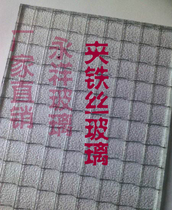 夹铁丝玻璃
永祥玻璃
厂家直销